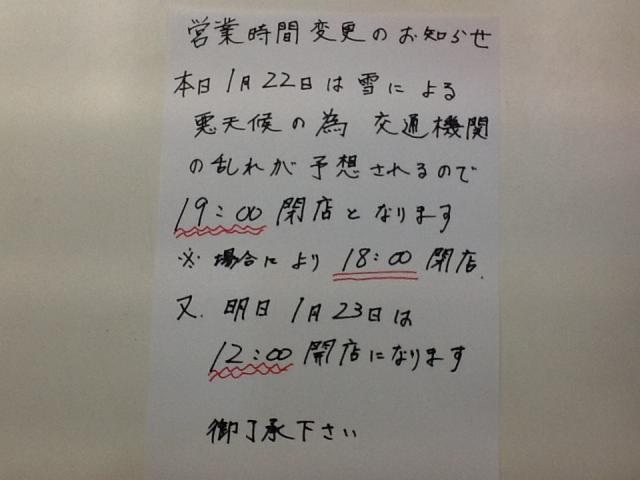 営業時間変更のお知らせ
本日1月22日は雪による
悪天候の為 交通機関
の乱れが予想されるので
19:00閉店となります
※場合により 18:00閉店.
又. 明日1月23日は
12:00開店になります
御了承下さい